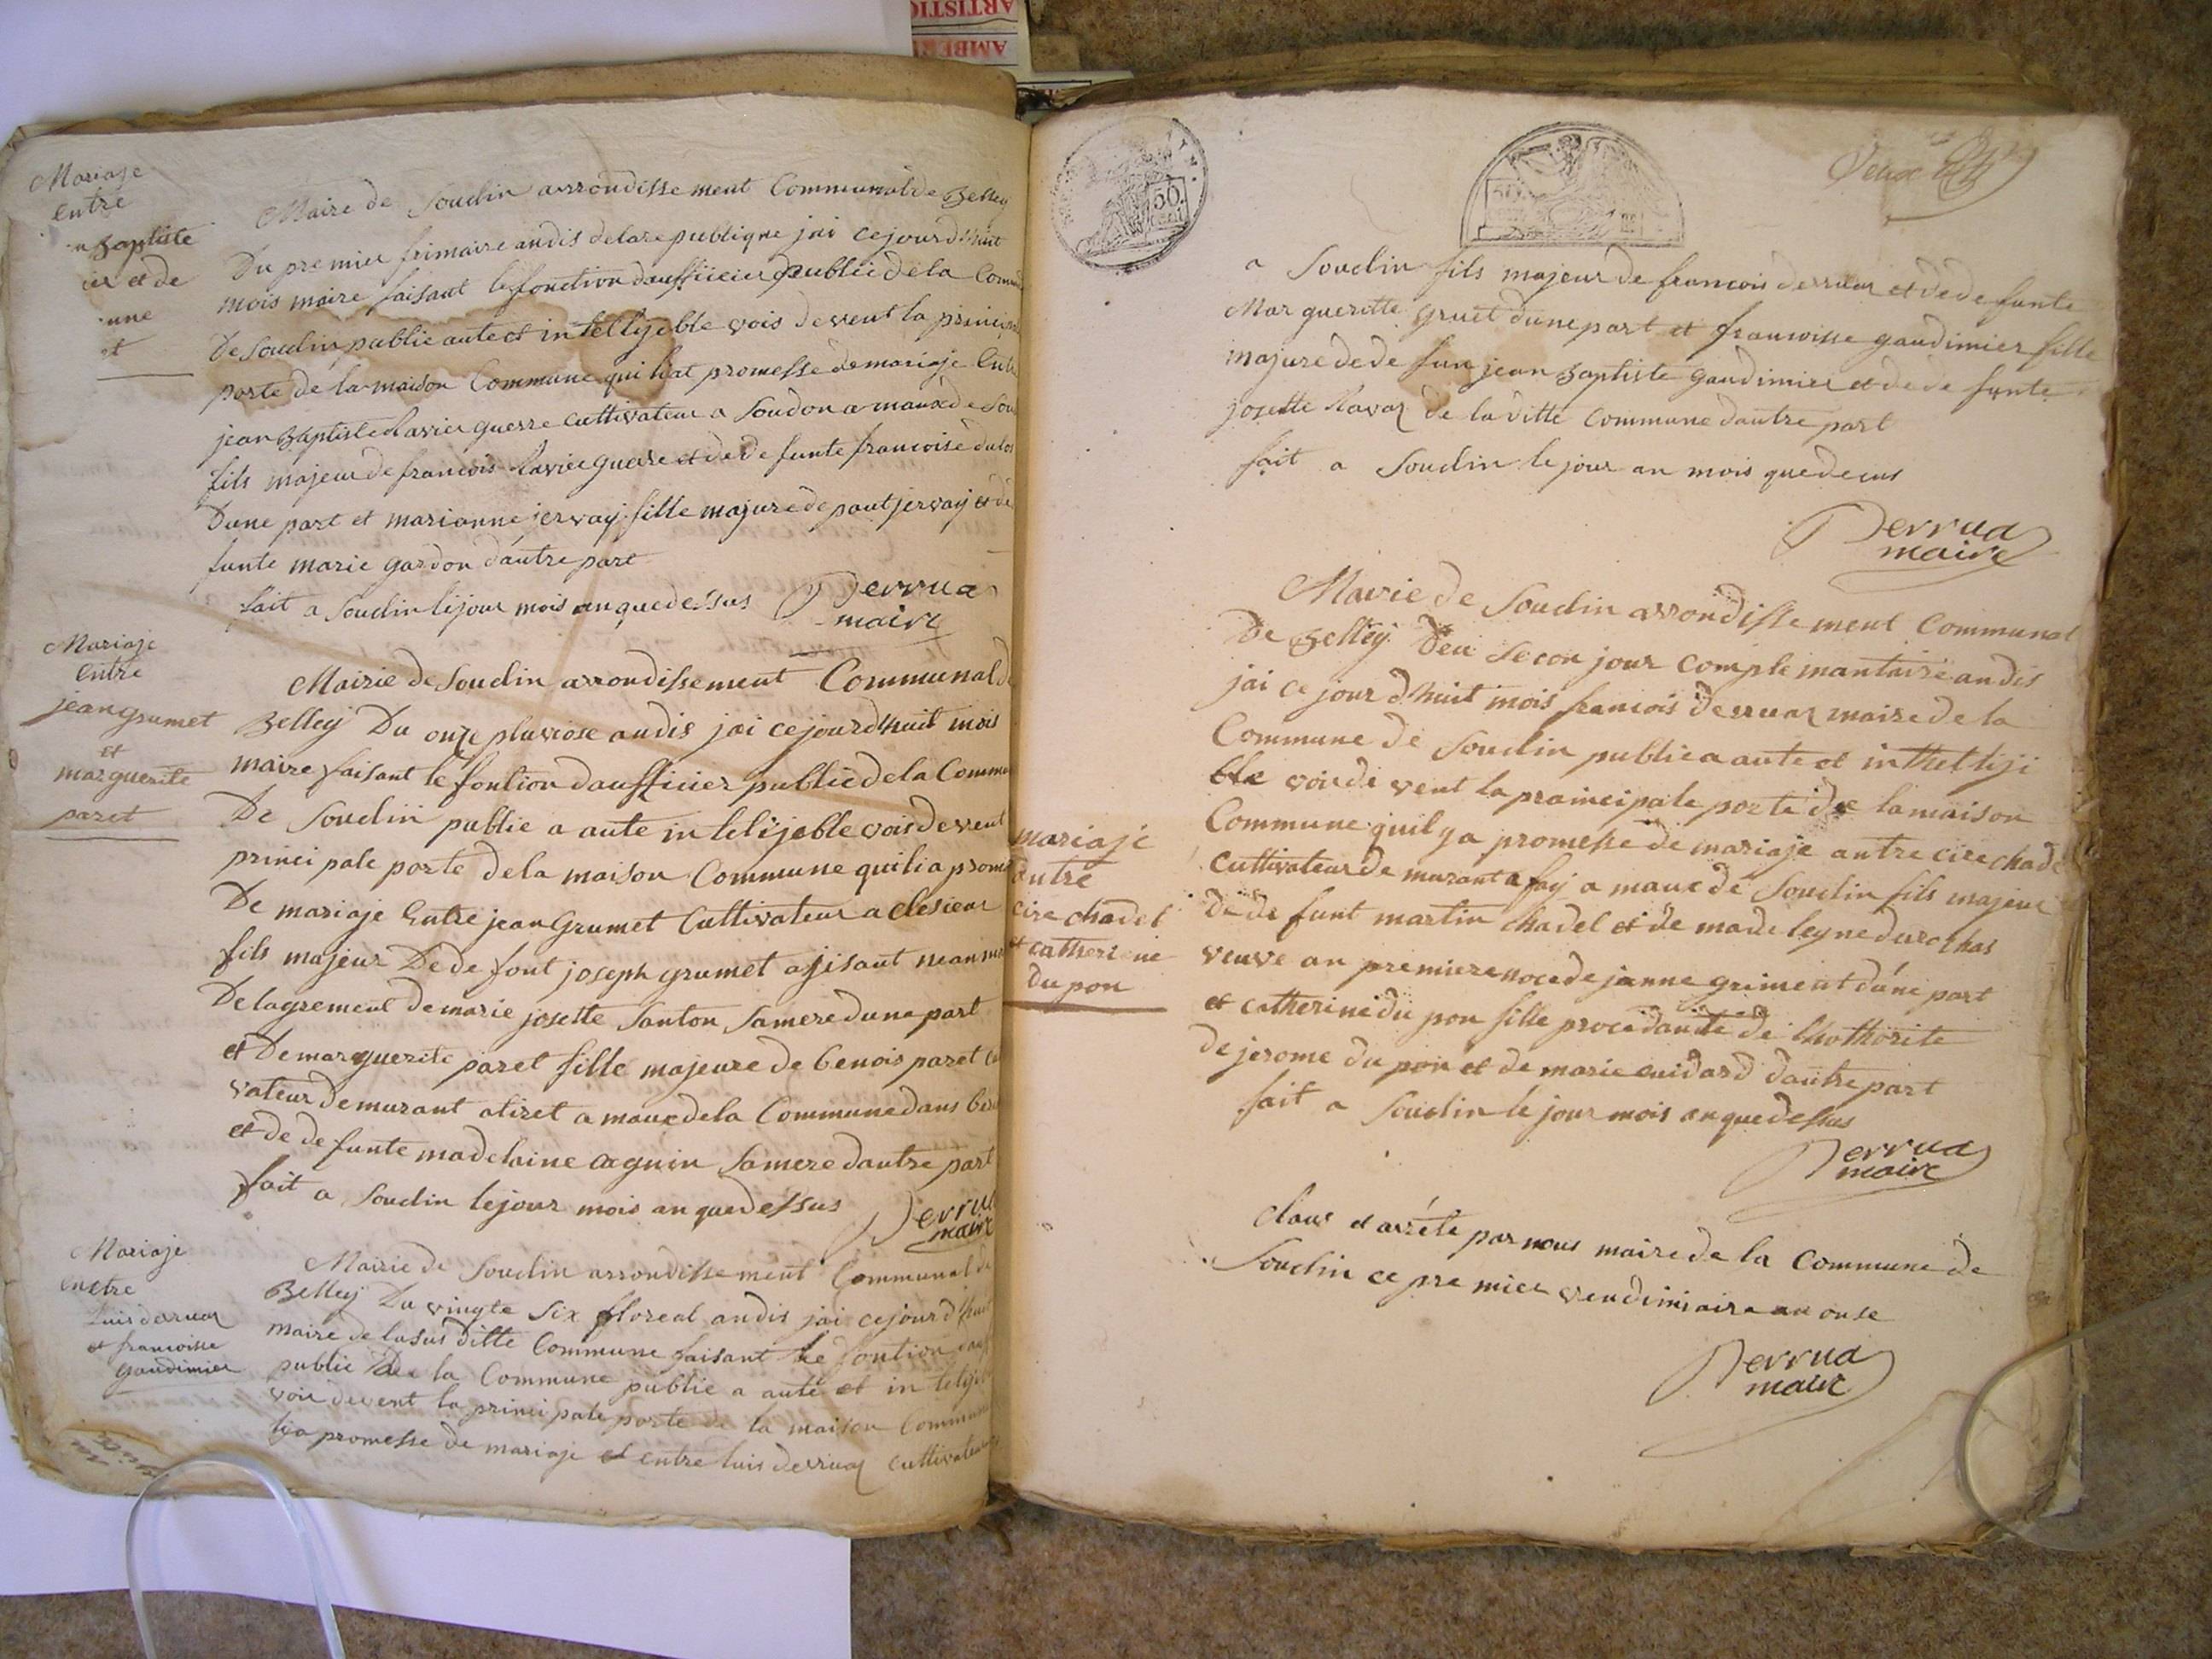 ARTISTIQ
AMBER
Mariaje
entre
n Baptiste
et de
une
et
Maire de Soudin arrondissement Communal de Belley
Du premier frimaire an dis de la republique jai ce jourd'huit
mois maire faisant le fonction daufficier public de la Commu
De Soudin public aute et intellijeble vois devent la principa
porte de la maison Commune qui liat promesse de mariaje Entre
jean Baptiste Ravier guerre cultivateur a Soudon amaux de Sou
fils majeur de francois Ravier guerre et de defunte francoise dulos
Dune part et marianne jervay fille majure de paut jervay et de
funte marie gardon d'autre part
fait a Soudin lejour mois an que dessus Derrua
maire
Mariaje
Entre
jean grumet
et
marguerite
paret
Mairie de Soudin arrondissement Communal de
Belley Du onze pluviose an dis jai ce jourd'huit mois
maire faisant le fontion daufficier public de la Commu
De Soudin public a aute in telijeble vois devent
principale porte de la maison Commune quil i a prome
De mariaje Entre jean Grumet Cultivateur a Clesieux
fils majeur De defont joseph grumet ajisant neanm
De lagrement de marie josette Santon Samere dune part
et De marguerite paret fille majeure de benois paret Cu
vateur demurant a tiret a maux de la Commune dans
et de defunte madelaine cagnin Samere dautre part
fait a Soudin le jour mois an que dessus Derrua
maire
Mariaje
Entre
Luis derruaz
et francoisse
gaudimier
Mairie de Soudin arrondissement Communal de
Belley Du vingte six floreal an dis jai ce jourd'huit
maire de la sus ditte Commune faisant le fontion dauf
public De la Commune public a aute et in telije
voie devent la principale porte de la maison Commune
lia promesse de mariaje et entre luis derruaz cultivateur
50
a Soudin fils majeur de francois derruaz et de defunte
Marqueritte gruet dune part et francoisse gaudimier fille
majure de defun jean Baptiste gaudimier et de defunte
josette Ravaz de la ditte Commune dautre part
fait a Soudin le jour an mois que decus
Derrua
maire
mariaje
Entre
cire chadel
et catherine
du pon
Mairie de Soudin arrondissement Communal
De Belley Deu Secon jour complemantaire an dis
jai ce jour d'huit mois francois derruaz maire de la
Commune de Soudin public a aute et inthelliji
ble voi de vent la prainicipale porte de la maison
Commune quil y a promesse de mariaje antre cire chadel
Cultivateur de murant a fay a maux de Soudin fils majeur
de defunt martin chadel et de madeleyne durochas
veuve an premiere noce de janne griment dune part
et catherine du pon fille procedante de lhothorite
de jerome du pon et de marie cuidard dautre part
fait a Soudin le jour mois an que dessus
Derrua
maire
Clause et arrété par nous maire de la Commune de
Soudin ce premier vendimiaire an onse
Derrua
maire